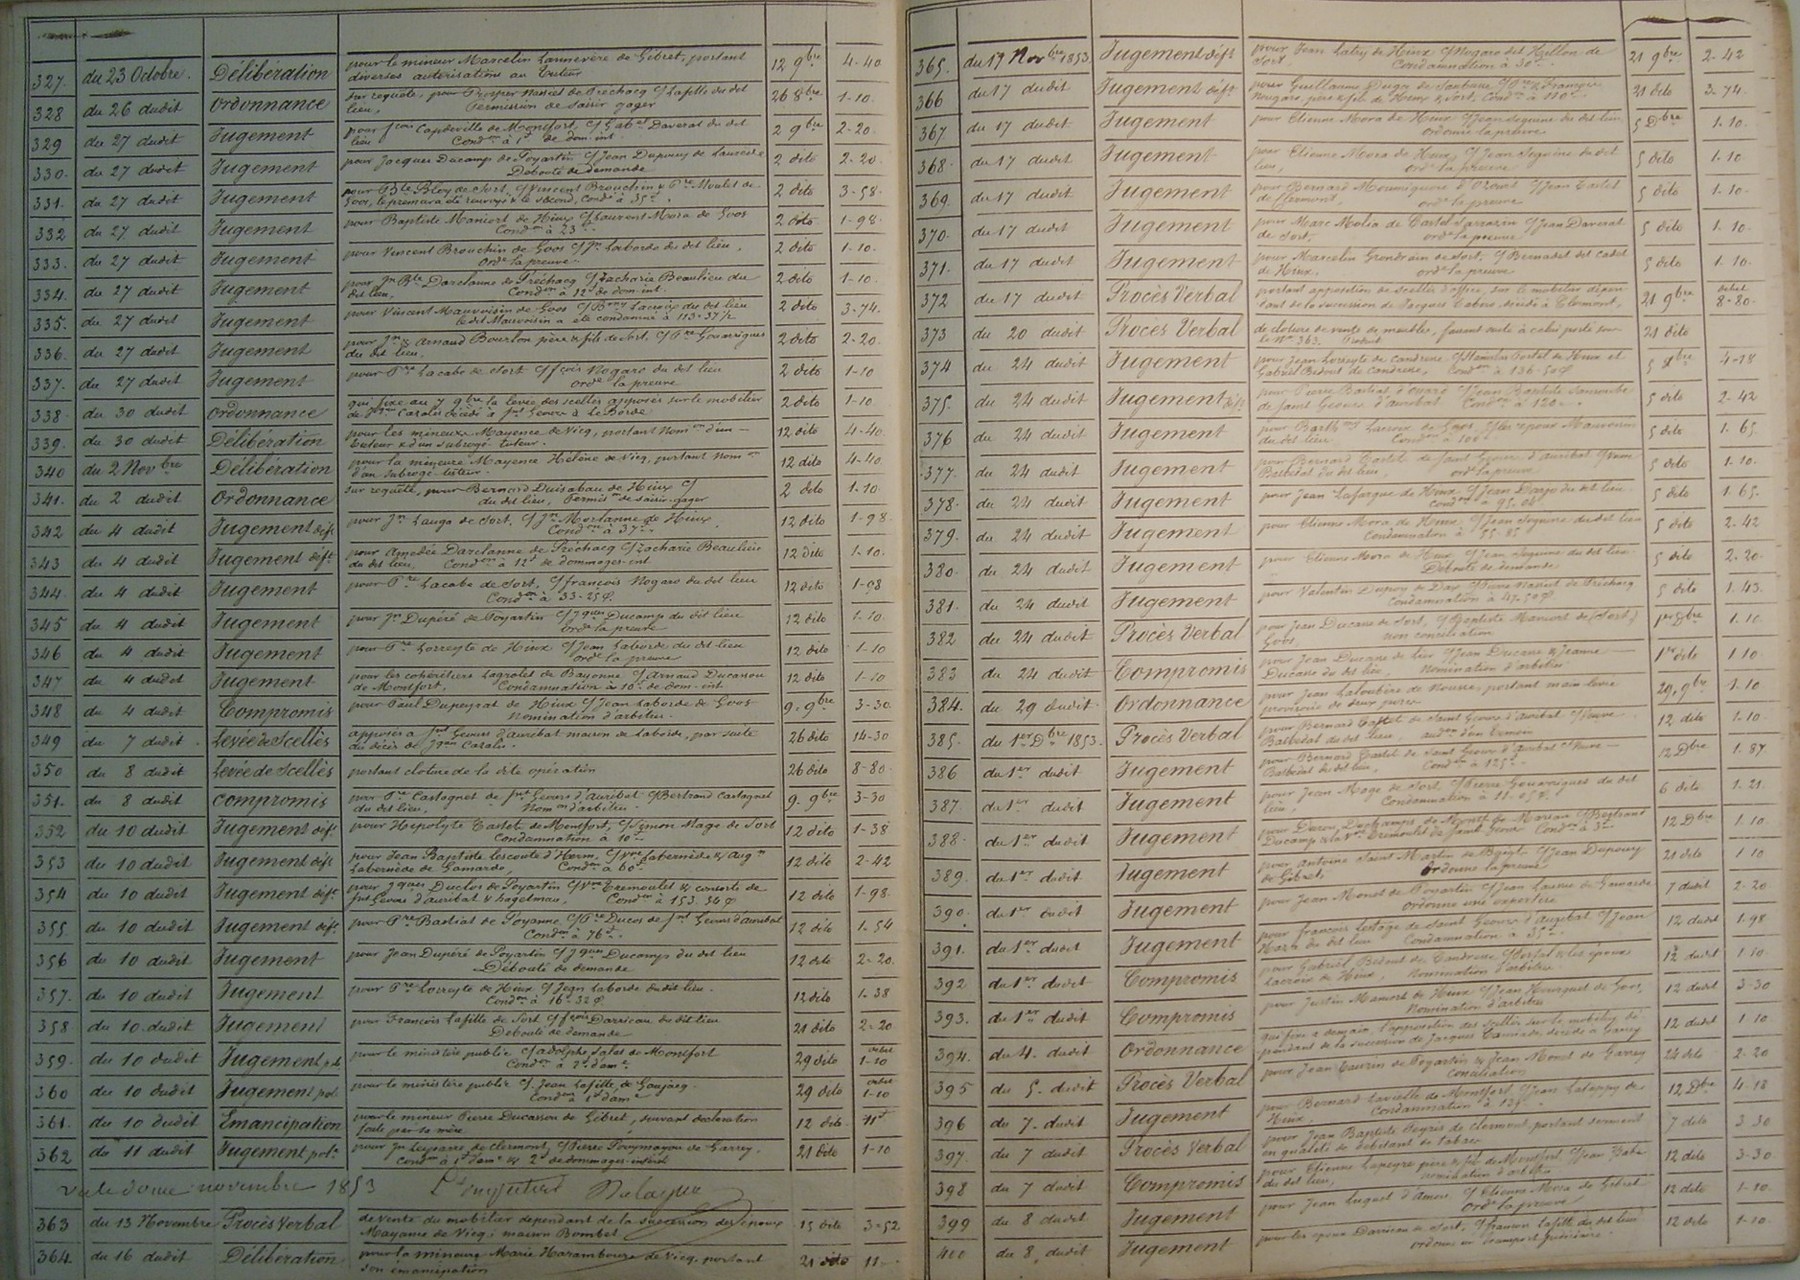 327. du 23 Octobre. Délibération pour le mineur Marcelin Lannevère de Gibret, portant diverses autorisations au tuteur 12 9bre 4-40
328 du 26 dudit Ordonnance sur requête, pour Prosper Nassiet de Préchacq c/ Lafitte du dit lieu, Permission de saisir gager 26 8bre 1-10.
329 du 27 dudit Jugement pour fcois Capdeville de Montfort, c/ Gabel Daverat du dit lieu Condon à 1f de dom. int. 2 9bre 2-20.
330. du 27 dudit Jugement pour Jacques Ducamp de Poyartin c/ Jean Dupouy de Laurède Débouté de demande 2 dito 2-20.
331. du 27 dudit Jugement 2 dito 3-58.
332 du 27 dudit Jugement pour Baptiste Maniort de Hinx c/ Laurent Mora de Goos Condon à 23f 2 dito 1-98.
333. du 27 dudit Jugement pour Vincent Brouchin de Goos c/ Pre Laborde du dit lieu, Orde la preuve. 2 dito 1-10.
334. du 27 dudit Jugement pour Jn Bte Darclanne de Préchacq c/ Zacharie Beaulieu du dit lieu, Condon à 12f de dom. int. 2 dito 1-10.
335. du 27 dudit Jugement pour Vincent Mauvoisin de Goos c/ Lacroix du dit lieu le dit Mauvoisin a été condamné à 113-37 1/2 2 dito 3-74.
336. du 27 dudit Jugement pour Jn & Arnaud Bourlon père & fils de Sort, c/ Pre Gouarrigues du dit lieu. 2 dito 2-20.
337. du 27 dudit Jugement pour Pre Lacabe de Sort c/ fçois Nogaro du dit lieu orde la preuve 2 dito 1-10
338. du 30 dudit Ordonnance qui fixe au 7 9bre la levée des scellés apposés sur le mobilier de Cazalis décédé à St Geours à Laborde 2 dito 1-10.
339. du 30 dudit Délibération pour les mineurs Mayence de Vicq, portant Nomon d'un tuteur & d'un subrogé tuteur. 12 dito 4-40.
340 du 2 Novbre Délibération pour la mineure Mayence Hélène de Vicq, portant Nomon d'un subrogé-tuteur. 12 dito 4-40.
341. du 2 dudit Ordonnance sur requête, pour Bernard Duisabau de Hinx c/ du dit lieu, Permison de saisir-gager 2 dito 1-10.
342 du 4 dudit Jugement déft pour Jn Lauga de Sort, c/ Jn Morlanne de Hinx. Condon à 37f 12 dito 1-98.
343 du 4 dudit Jugement déft pour Amédée Darclanne de Préchacq c/ Zacharie Beaulieu du dit lieu, Condon à 12f de dommages-int. 12 dito 1-10.
344. du 4 dudit Jugement pour Pre Lacabe de Sort, c/ françois Nogaro du dit lieu Condon à 33-25c. 12 dito 1-98
345 du 4 dudit Jugement pour Jn Dupéré de Poyartin c/ Jques Ducamp du dit lieu orde la preuve 12 dito 1-10.
346 du 4 dudit Jugement pour Pre Lorreyte de Hinx c/ Jean Laborde du dit lieu orde la preuve 12 dito 1-10
347 du 4 dudit Jugement pour les cohéritiers Lagrolet de Bayonne c/ Arnaud Ducasson de Montfort, Condamnation à 10f de dom. int. 12 dito 1-10
348 du 4 dudit Compromis pour Paul Dupeyrat de Hinx c/ Jean Laborde de Goos Nomination d'arbitres. 9. 9bre 3-30
349 du 7 dudit. Levée de Scellés apposés à St Geours d'auribat maison de Laborde, par suite du décès de Jean Cazalis. 26 dito 14-30
350 du 8 dudit Levée de Scellés portant cloture de la dite opération 26 dito 8-80.
351. du 8 dudit compromis pour Pre Castagnet de St Geours d'auribat c/ Bertrand Castagnet du dit lieu. Nomon d'arbitres. 9. 9bre 3-30
352 du 10 dudit Jugement déft pour Hipolyte Castets de Montfort, c/ Simon Mage de Sort Condamnation à 10f 12 dito 1-38
353 du 10 dudit Jugement déft pour Jean Baptiste Lescoute d'Herm, c/ Vve Labernède & Augn Labernède de Gamarde, Condon à 60f 12 dito 2-42
354 du 10 dudit Jugement déft pour Jques Duclos de Poyartin c/ Vve Tremoulet & consorts de St Geours d'auribat & hagetmau, Condon à 153.36c 12 dito 1-98.
355 du 10 dudit Jugement déft pour Pre Bastiat de Poyanne, c/ Pre Ducos de St Geours d'auribat Condon à 76f. 12 dito 1-54
356 du 10 dudit Jugement pour Jean Dupéré de Poyartin c/ Jques Ducamp du dit lieu Débouté de demande 12 dito 2-20.
357. du 10 dudit Jugement pour Pre Lorreyte de Hinx c/ Jean Laborde du dit lieu. Condon à 16f 32c. 12 dito 1-38
358 du 10 dudit Jugement pour François Lafitte de Sort c/ fçois Darricau du dit lieu Débouté de demande 21 dito 2-20
359. du 10 dudit Jugement pol pour le ministère public c/ adolphe Sales de Montfort Condon à 2f d'ame 29 dito débet 1-10
360 du 10 dudit Jugement pol. pour le ministère public c/ Jean Lafitte, de Goujacq. Condon 1f d'ame 29 dito débet 1-10
361. du 10 dudit Emancipation pour le mineur Pierre Ducasson de Gibret, suivant déclaration faite par sa mère 12 dito. 11f
362 du 11 dudit Jugement pole pour Jn Leyzarre de Clermont, c/ Pierre Pouymayou de Garrey. Condon à 1f d'ame & 2f de dommages-intérêts 21 dito 1-10
Vu le douze novembre 1853 L'inspecteur Delaque
363 du 13 Novembre Procès Verbal de vente du mobilier dépendant de la succession des époux Mayance de Vicq, maison Bombet 15 dito 3-52
364. du 16 dudit Délibération pour la mineure Marie Haramboure de Vicq, portant son émancipation 21 dito 11-
365. du 17 Novbre 1853 Jugement déft pour Jean Latry de Hinx c/ Nogaro dit Hillon de Sort. Condamnation à 30f. 21 9bre 2-42
366 du 17 dudit Jugement déft 21 dito 3-74.
367. du 17 dudit Jugement pour Etienne Mora de Hinx c/ Jean Seguine du dit lieu ordonne la preuve 5 Dbre 1-10.
368. du 17 dudit Jugement pour Etienne Mora de Hinx, c/ Jean Seguine du dit lieu, orde la preuve 5 dito 1-10
369. du 17 dudit Jugement pour Bernard Moumiguere d'Ozourt c/ Jean Castet de Clermont, orde la preuve 5 dito 1-10.
370. du 17 dudit Jugement pour Marc Molia de Castel Sarrazin c/ Jean Daverat de Sort, orde la preuve 5 dito 1-10.
371. du 17 dudit Jugement pour Marcelin Grondrain de Sort, c/ Bernadet dit cadet de Hinx. orde la preuve 5 dito 1-10.
372 du 17 dudit Procès Verbal portant apposition de scellés d'office, sur le mobilier dépendant de la succession de Jacques décédé à Clermont, 21 9bre débet 8-80.
373 du 20 dudit Procès Verbal de cloture de vente de meubles, faisant suite à celui porté sous le No 363. 21 dito
374 du 24 dudit Jugement pour Jean Lorreyte de Candresse, c/ Stanislas Portal de Hinx et Gabriel Bedout de Candresse, Condon à 136-50c 5 Dbre 4-18
375. du 24 dudit Jugement déft pour Pierre Bastiat d'Onard c/ Jean Baptiste de Saint Geours d'auribat Condon à 120f. 5 dito 2-42
376 du 24 dudit Jugement pour Barthmy Lacroix de Goos, c/ les époux Mauvoisin du dit lieu Condon à 100f 5 dito 1-65.
377. du 24 dudit Jugement pour Bernard Castet de Saint Geours d'auribat c/ Balbedat du dit lieu, orde la preuve 5 dito 1-10.
378. du 24 dudit Jugement pour Jean Lafargue de Hinx c/ Jean Darjo du dit lieu. 5 dito 1-65.
379. du 24 dudit Jugement pour Etienne Mora de Hinx, c/ Jean Seguine du dit lieu Condamnation à 55-85 5 dito 2-42
380. du 24 dudit Jugement pour Etienne Mora de Hinx c/ Jean Seguine du dit lieu. Débouté de demande 5 dito 2-20.
381. du 24 dudit Jugement pour Valentin Dupoy de Dax c/ Pierre Nassiet de Préchacq Condamnation à 47-50c 5 dito 1-43.
382 du 24 dudit Procès Verbal pour Jean Ducasse de Sort, c/ Baptiste Maniort de (Sort) Goos non conciliation 1er Dbre 1-10.
383 du 24 dudit Compromis pour Jean Ducasse de Lier c/ Jean Ducasse & Jeanne Ducasse du dit lieu, Nomination d'arbitres 1er dito 1-10.
384. du 29 dudit Ordonnance pour Jean Laloubère de Nousse, portant main levée provisoire de deux porcs 29. 9bre 1-10
385. du 1er Dbre 1853. Procès Verbal pour Bernard Castet de Saint Geours d'auribat c/ Balbedat du dit lieu, audon d'un témoin 12 dito 1-10.
386 du 1er dudit Jugement pour Bernard Castet de Saint Geours d'auribat c/ Balbedat du dit lieu, Condon à 125f. 12 Dbre 1.87
387. du 1er dudit Jugement pour Jean Mage de Sort, c/ Pierre Gouarrigues du dit lieu, Condamnation à 11-05c. 6 dito 1-21.
388. du 1er dudit Jugement 12 Dbre 1-10.
389. du 1er dudit Jugement pour Antoine Saint Martin de c/ Jean Dupouy de Gibret Ordonne la preuve 21 dito 1-10
390. du 1er dudit Jugement pour Jean Monet de Poyartin c/ Jean Lasse de Gamarde ordonne une expertise 7 dudit 2-20
391. du 1er dudit Jugement pour françois Lestage de Saint Geours d'auribat c/ Jean Mora du dit lieu Condamnation à 35f. 12 dudit 1-98
392 du 1er dudit Compromis pour Gabriel Bedout de Candresse c/ Portal & les époux Lacroix de Hinx, Nomination d'arbitres. 12 dudit 1-10.
393. du 1er dudit Compromis pour Justin Maniort de Hinx c/ Jean Hourquet de Goos, Nomination d'arbitres 12 dudit 3-30
394. du 4. dudit Ordonnance qui fixe à demain l'apposition des scellés sur le mobilier dépendant de la succession de Jacques décédé à Garrey 12 dudit 1-10
395 du 5. dudit Procès Verbal pour Jean Taurin de Poyartin & Jean Monet de Garrey Conciliation 24 dito 2-20
396 du 7. dudit Jugement pour Bernard Lavielle de Montfort, c/ Jean Lalappy de Hinx. 12. Dbre 4-18
397. du 7 dudit Procès Verbal pour Jean Baptiste Peyris de Clermont, portant serment en qualité de débitant de tabac 7 dito 3-30
398 du 7 dudit Compromis pour Etienne Lapeyre père & fils de Montfort c/ Jean du dit lieu, nomination d'arbitre 12 dito 3-30.
399 du 8 dudit Jugement pour Jean Luquet d'Amou, c/ Etienne Mora de Gibret Orde la preuve 12 dito 1-10.
400 du 8. dudit Jugement pour les époux Darricau de Sort, c/ françois Lafitte du dit lieu ordonne un transport judiciaire. 12 dito 1-10.